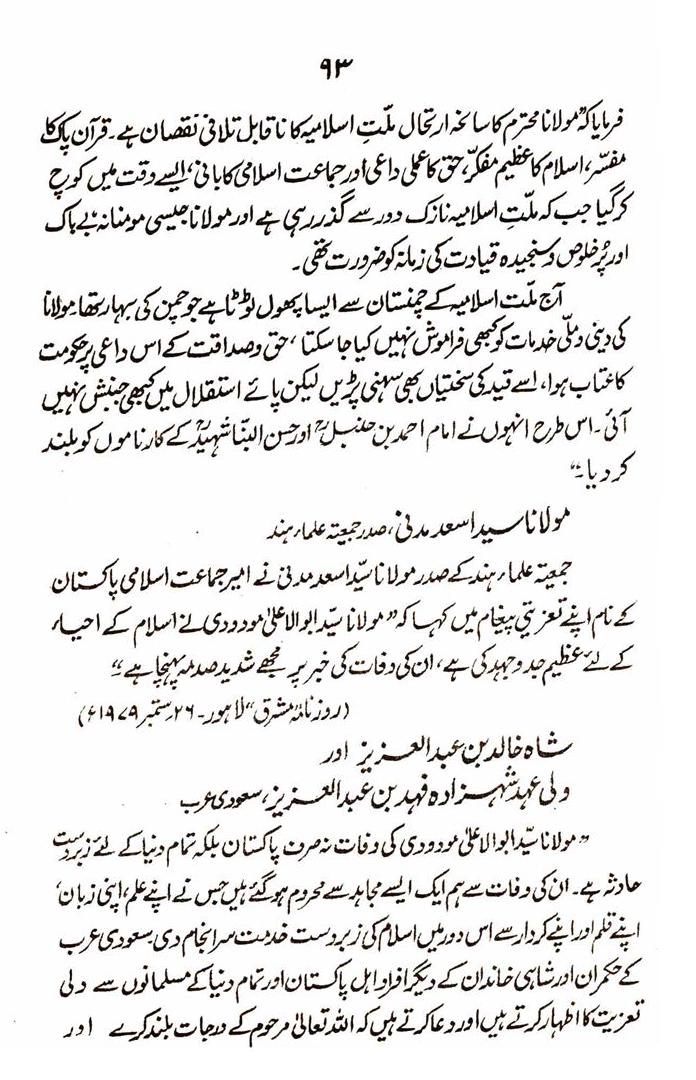 ۹۳
فرمایا کہ ”مولانا محترم کا سانحہ ارتحال ملّتِ اسلامیہ کا ناقابل تلافی نقصان ہے۔ قرآن پاک کا
مفسّر، اسلام کا عظیم مفکّر، حق کا عملی داعی اور جماعت اسلامی کا بانی، ایسے وقت میں کوچ
کر گیا جب کہ ملّتِ اسلامیہ نازک دور سے گذر رہی ہے اور مولانا جیسی مومنانہ بے باک
اور پُر خلوص و سنجیدہ قیادت کی زمانہ کو ضرورت تھی۔
آج ملّت اسلامیہ کے چمنستان سے ایسا پھول ٹوٹا ہے جو چمن کی بہار تھا۔ مولانا
کی دینی و ملّی خدمات کو کبھی فراموش نہیں کیا جا سکتا، حق و صداقت کے اس داعی پر حکومت
کا عتاب ہوا، اسے قید کی سختیاں بھی سہنی پڑیں لیکن پائے استقلال میں کبھی جنبش نہیں
آئی۔ اس طرح انہوں نے امام احمد بن حنبلؒ اور حسن البنّا شہیدؒ کے کارناموں کو بلند
کر دیا۔“
مولانا سید اسعد مدنی، صدر جمعیۃ علماء ہند
جمعیۃ علماء ہند کے صدر مولانا سیّد اسعد مدنی نے امیر جماعت اسلامی پاکستان
کے نام اپنے تعزیتی پیغام میں کہا کہ ”مولانا سیّد ابوالاعلیٰ مودودی نے اسلام کے احیاء
کے لئے عظیم جدوجہد کی ہے، ان کی وفات کی خبر پر مجھے شدید صدمہ پہنچا ہے“
(روزنامہ ”مشرق“ لاہور۔ ۲۶ ستمبر ۱۹۷۹ء)
شاہ خالد بن عبدالعزیز اور
ولی عہد شہزادہ فہد بن عبدالعزیز، سعودی عرب
”مولانا سیّد ابوالاعلیٰ مودودی کی وفات نہ صرف پاکستان بلکہ تمام دنیا کے لئے زبردست
حادثہ ہے۔ ان کی وفات سے ہم ایک ایسے مجاہد سے محروم ہو گئے ہیں جس نے اپنے علم، اپنی زبان،
اپنے قلم اور اپنے کردار سے اس دور میں اسلام کی زبردست خدمت سرانجام دی۔ سعودی عرب
کے حکمران اور شاہی خاندان کے دیگر افراد اہل پاکستان اور تمام دنیا کے مسلمانوں سے دلی
تعزیت کا اظہار کرتے ہیں اور دعا کرتے ہیں کہ اللہ تعالیٰ مرحوم کے درجات بلند کرے اور